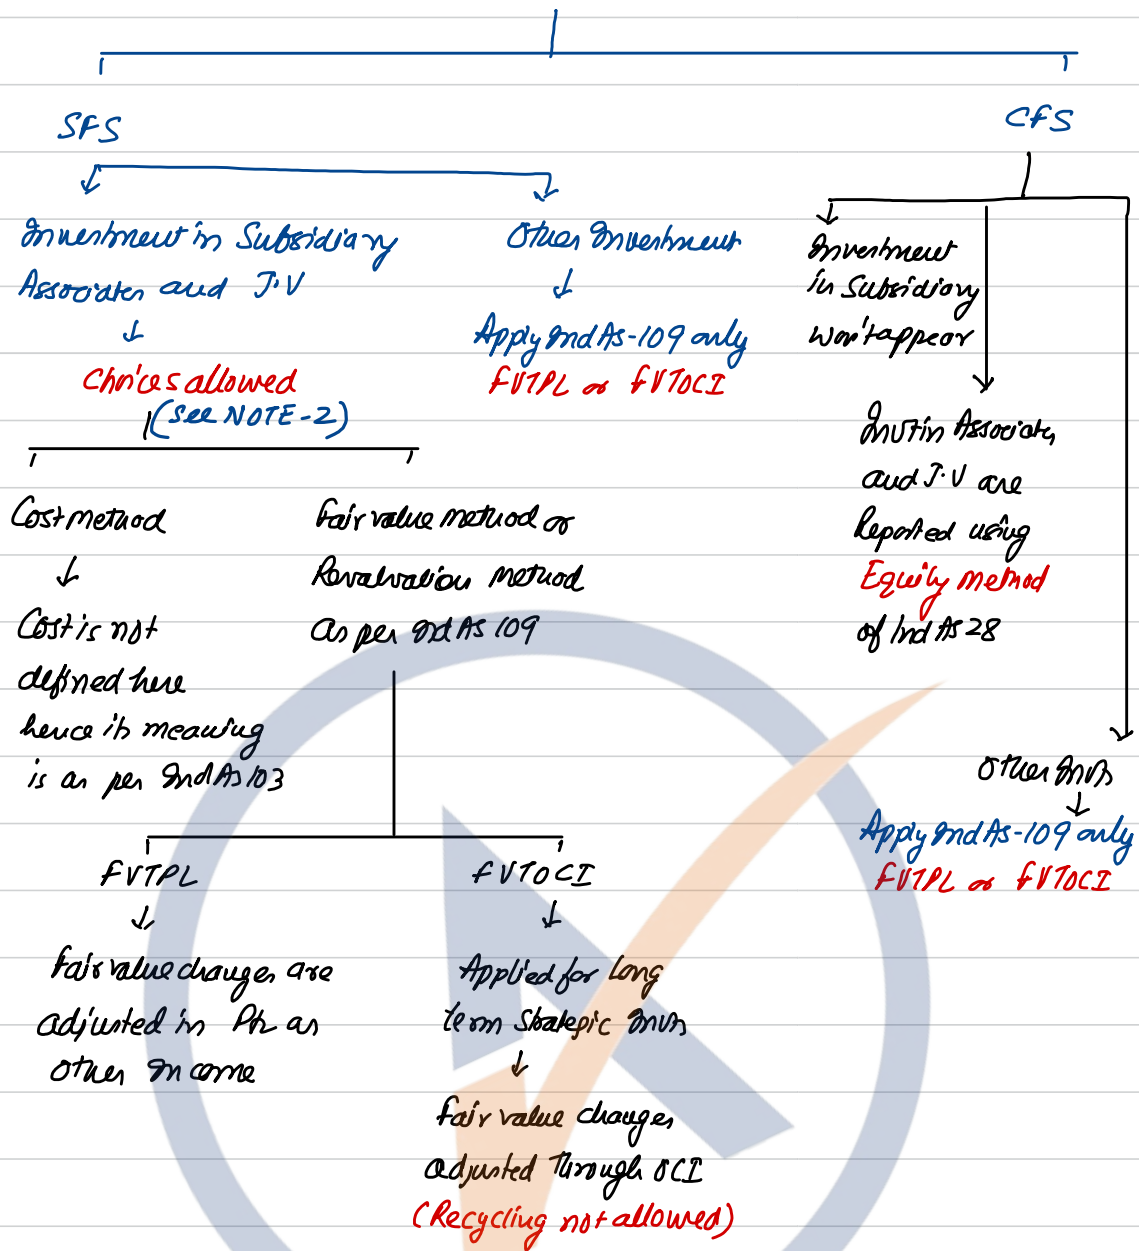 SFS
CFS
Investment in Subsidiary
Associates and J.V
Choices allowed
(See NOTE-2)
Other Investment
Apply Ind As-109 only
FVTPL or FVTOCI
Investment
in Subsidiary
won't appear
Invt in Associates
and J.V are
Reported using
Equity method
of Ind AS 28
Cost method
Cost is not
defined here
hence its meaning
is as per Ind As 103
Fair value method or
Revaluation method
as per Ind As 109
Other Invts
Apply Ind As-109 only
FVTPL or FVTOCI
FVTPL
Fair value changes are
adjusted in P/L as
other Income
FVTOCI
Applied for Long
term Strategic Invts
Fair value changes
adjusted through OCI
(Recycling not allowed)